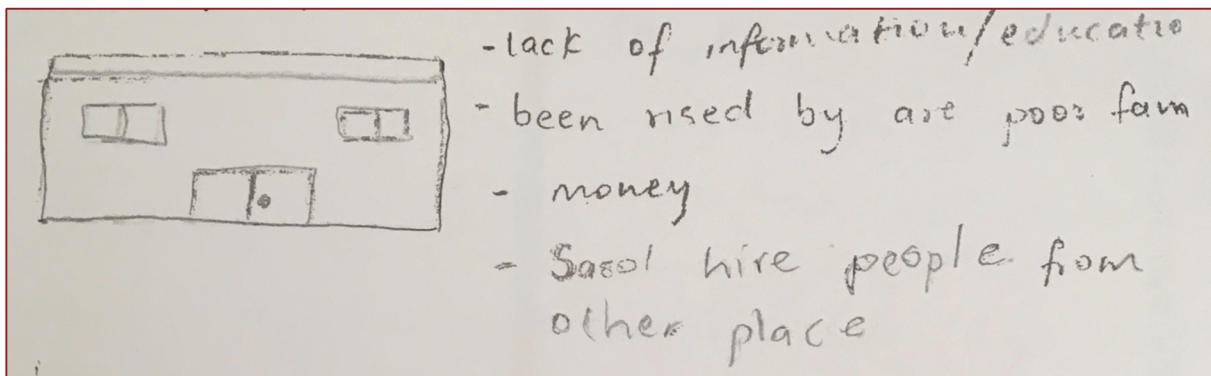 - lack of information/educatio
- been rised by are poor fam
- money
- Sasol hire people from
other place